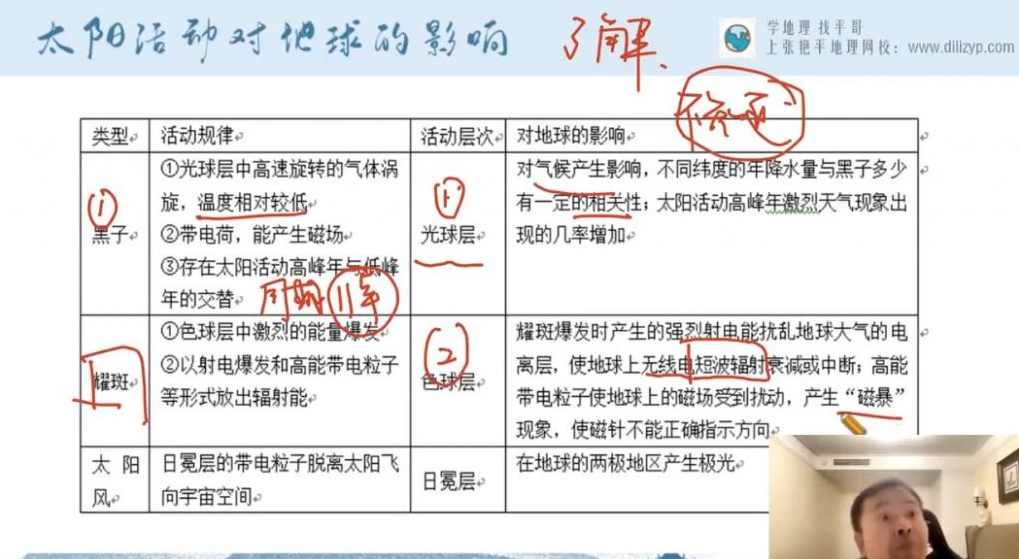 太阳活动对地球的影响
了解
学地理 找平哥
上张艳平地理网校：www.dilizyp.com
类型
活动规律
活动层次
对地球的影响
①
黑子
①光球层中高速旋转的气体涡
旋，温度相对较低
②带电荷，能产生磁场
③存在太阳活动高峰年与低峰
年的交替
周期 11年
光球层
对气候产生影响，不同纬度的年降水量与黑子多少
有一定的相关性；太阳活动高峰年激烈天气现象出
现的几率增加
耀斑
①色球层中激烈的能量爆发
②以射电爆发和高能带电粒子
等形式放出辐射能
②
色球层
耀斑爆发时产生的强烈射电能扰乱地球大气的电
离层，使地球上无线电短波辐射衰减或中断；高能
带电粒子使地球上的磁场受到扰动，产生“磁暴”
现象，使磁针不能正确指示方向
太阳
风
日冕层的带电粒子脱离太阳飞
向宇宙空间
日冕层
在地球的两极地区产生极光